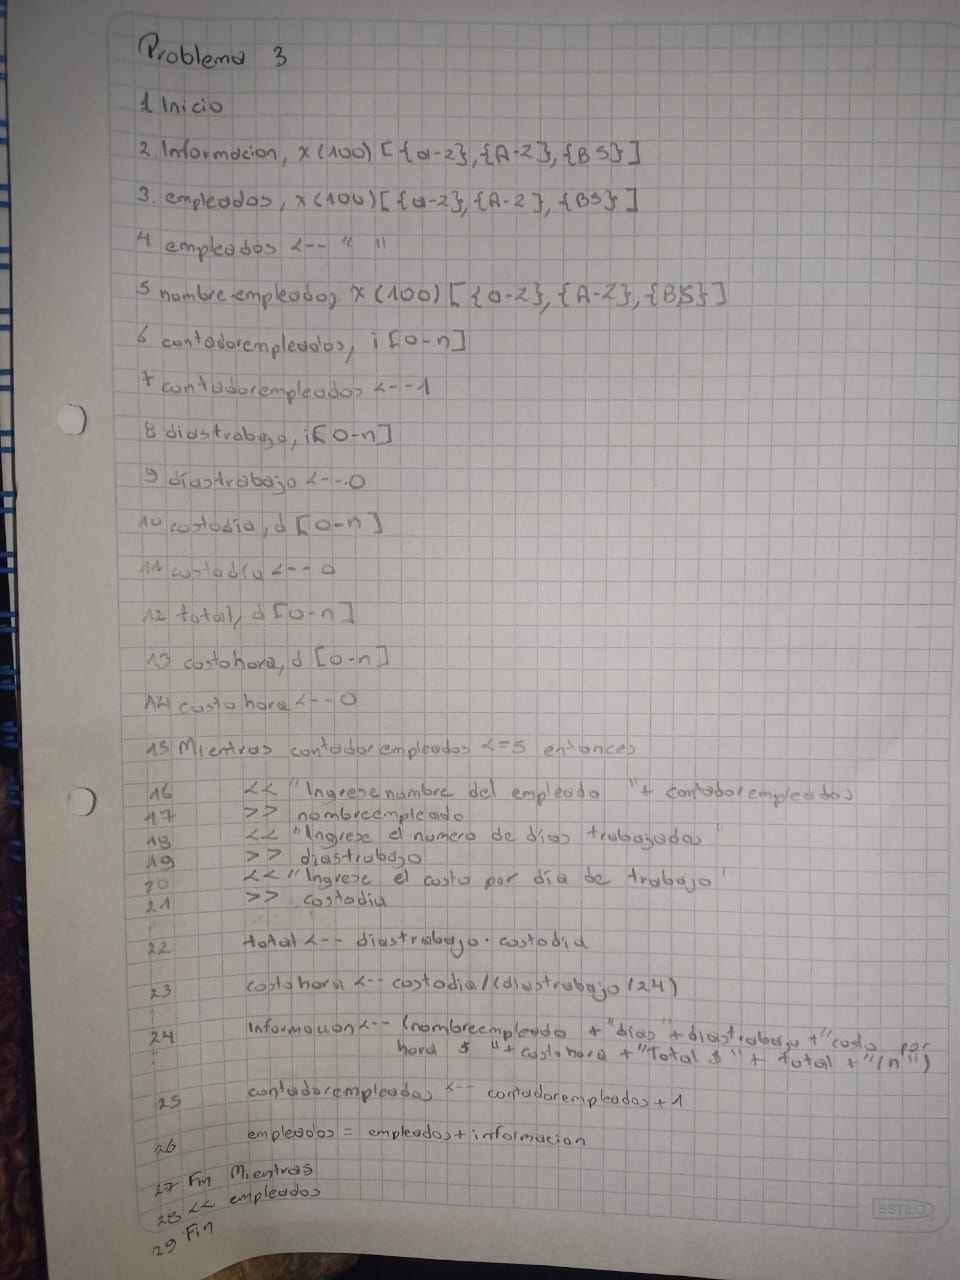 Problema 3
1 Inicio
2. Informacion, x(100) [{a-z},{A-Z},{BS}]
3. empleados, x(100)[{a-z},{A-Z},{BS}]
4 empleados <-- " "
5 nombre empleado, x(100) [{a-z},{A-Z},{BS}]
6 contadorempleados, i [0-n]
7 contadorempleados <--1
8 diastrabajo, i[0-n]
9 diastrabajo <--0
10 costodia, d [0-n]
11 costodia <-- 0
12 total, d [0-n]
13 costohora, d [0-n]
14 costohora <--0
15 Mientras contadorempleados <=5 entonces
16 << "Ingrese nombre del empleado "+ contadorempleados
17 >> nombreempleado
18 << "Ingrese el numero de dias trabajados"
19 >> diastrabajo
20 << "Ingrese el costo por dia de trabajo"
21 >> costodia
22 total <-- diastrabajo · costodia
23 costohora <-- costodia/(diastrabajo/24)
24 Informacion <-- (nombreempleado + "dias" + diastrabajo + "costo por
hora $ "+ costohora + "Total $ "+ total + "/n")
25 contadorempleados <-- contadorempleados + 1
26 empleados = empleados + informacion
27 Fin Mientras
28 << empleados
29 Fin
ESTILO